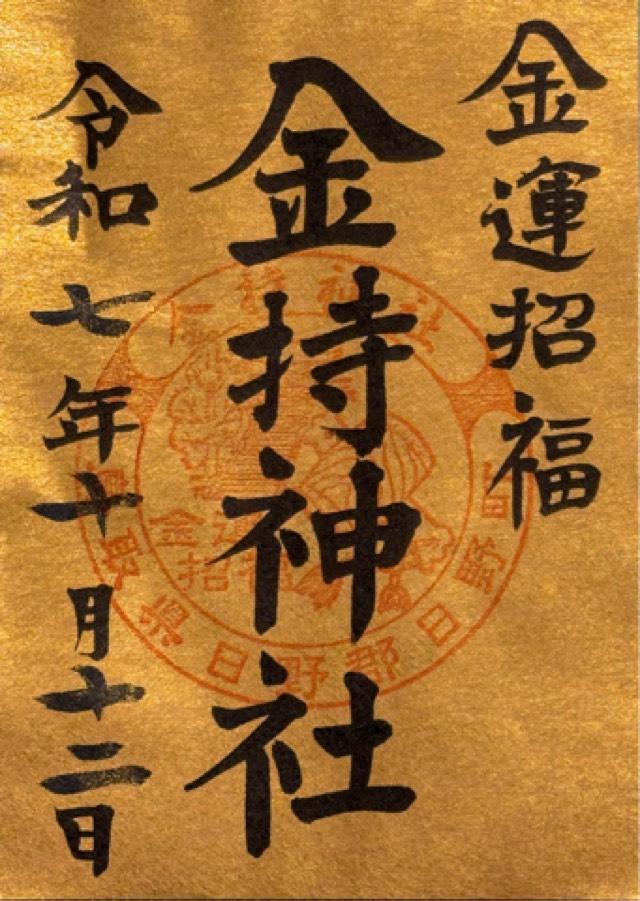 金運招福
金持神社
令和七年十月十二日
金持神社
鳥取県日野郡日野町
金運招福